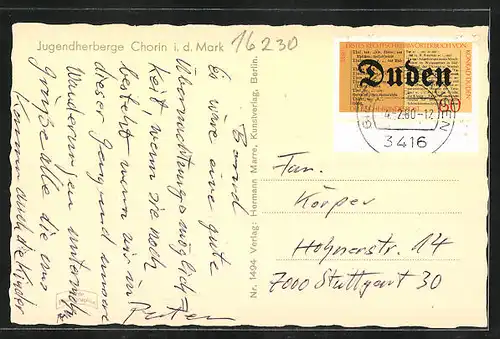 Jugendherberge Chorin i. d. Mark
16230
Bernd
Es wäre eine gute
Übernachtungsmöglich
keit, wenn sie noch
besteht wenn wir in
dieser Gegend unsere
Wanderungen
Grüße alle die uns
kennen auch die Kinder
Nr. 1494 Verlag: Hermann Marre, Kunstverlag, Berlin.
ERSTES RECHTSCHREIBWÖRTERBUCH VON
KONRAD DUDEN
Duden
60
-2.80-12
3416
Fam.
Körper
Hohnerstr. 14
7000 Stuttgart 30